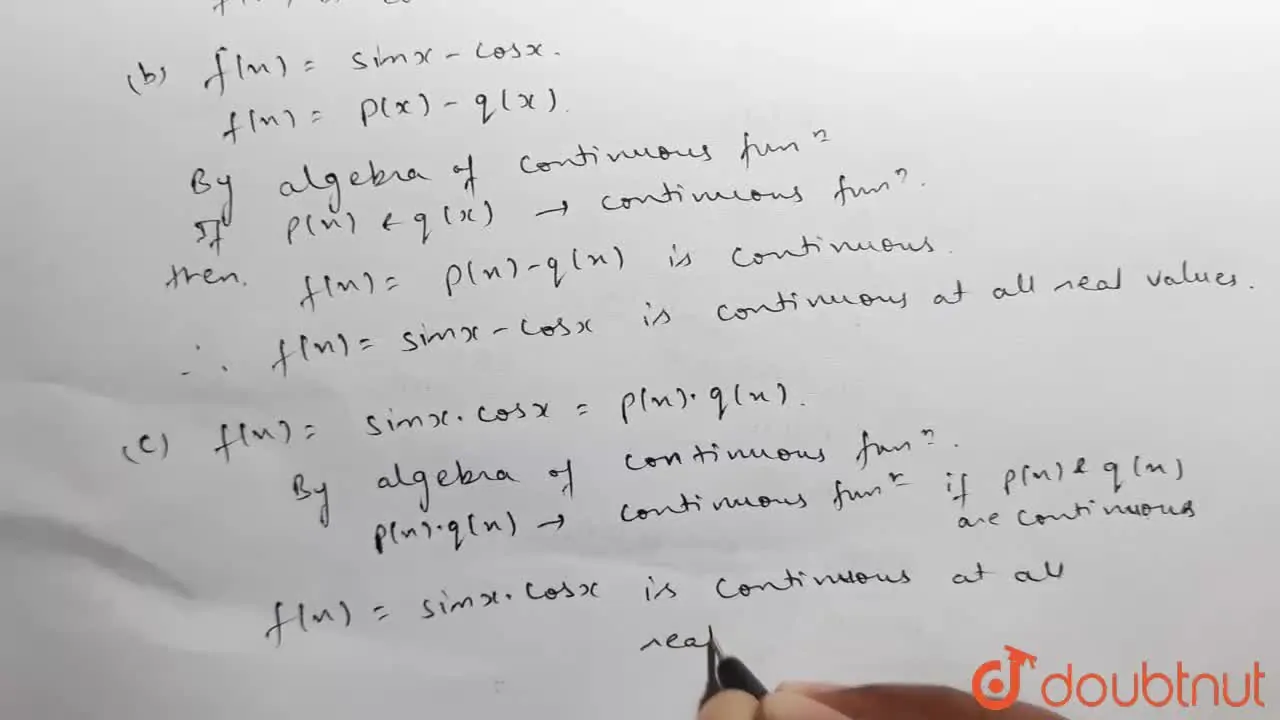 (b) f(x) = sinx - cosx.
f(x) = p(x) - q(x).
By algebra of continuous funⁿ
If p(x) & q(x) → continuous funⁿ.
then. f(x) = p(x) - q(x) is continuous.
∴ f(x) = sinx - cosx is continuous at all real values.
(c) f(x) = sinx. cosx = p(x). q(x).
By algebra of continuous funⁿ.
p(x). q(x) → continuous funⁿ if p(x) & q(x)
are continuous
f(x) = sinx. cosx is continuous at all
real
doubtnut